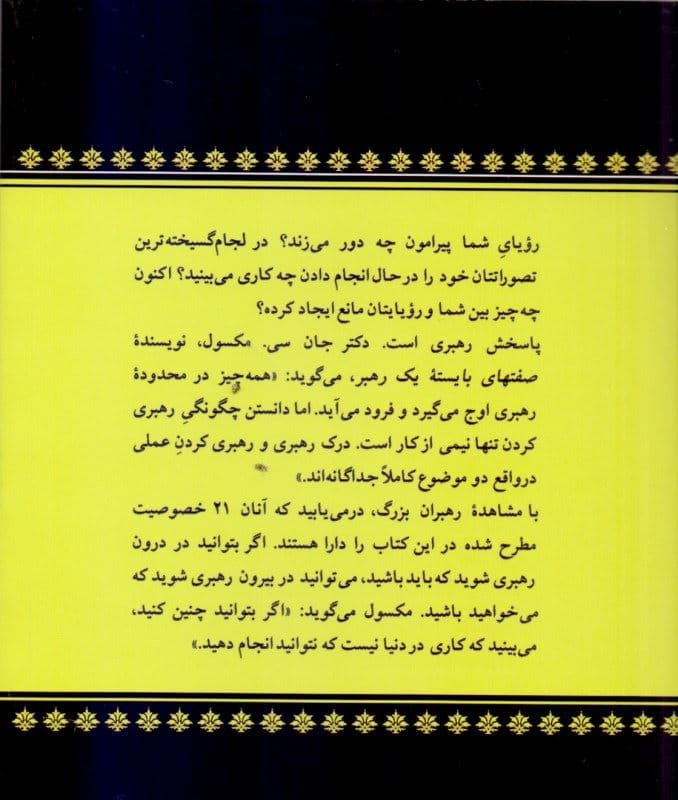 رؤیایِ شما پیرامون چه دور می‌زند؟ در لجام‌گسیخته‌ترین
تصوراتتان خود را در حال انجام دادن چه کاری می‌بینید؟ اکنون
چه‌چیز بین شما و رؤیایتان مانع ایجاد کرده؟
پاسخش رهبری است. دکتر جان سی. مکسول، نویسندهٔ
صفتهای بایستهٔ یک رهبر، می‌گوید: «همه‌چیز در محدودهٔ
رهبری اوج می‌گیرد و فرود می‌آید. اما دانستن چگونگیِ رهبری
کردن تنها نیمی از کار است. درک رهبری و رهبری کردنِ عملی
درواقع دو موضوع کاملاً جداگانه‌اند.»
با مشاهدهٔ رهبران بزرگ، درمی‌یابید که آنان ۲۱ خصوصیت
مطرح شده در این کتاب را دارا هستند. اگر بتوانید در درون
رهبری شوید که باید باشید، می‌توانید در بیرون رهبری شوید که
می‌خواهید باشید. مکسول می‌گوید: «اگر بتوانید چنین کنید،
می‌بینید که کاری در دنیا نیست که نتوانید انجام دهید.»